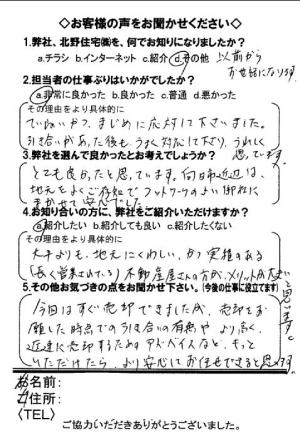 ◇お客様の声をお聞かせください◇
1.弊社、北野住宅㈱を、何でお知りになりましたか?
a.チラシ b.インターネット c.紹介 d.その他 以前から
お世話になります。
2.担当者の仕事ぶりはいかがでしたか?
a.非常に良かった b.良かった c.普通 d.悪かった
その理由をより具体的に
ていねいかつ、まじめに応対して下さいました。
引き合いがあった後も、うまく対応して下さり、うれしく
思っています。
3.弊社を選んで良かったとお考えでしょうか?
とても良かったと思っています。向日市近辺は、
地元をよくご存知でフットワークのよい御社に
まかせて安心でした
4.お知り合いの方に、弊社をご紹介いただけますか?
a.紹介したい b.紹介しても良い c.紹介したくない
その理由をより具体的に
大手よりも、地元にくわしい、かつ実積のある
(長く営業されている)不動産屋さんの方が、メリットが大きい
と思います。
5.その他お気づきの点をお聞かせ下さい。(今後の仕事に役立てます)
今回はすぐ売却できましたが、売却をお
願した時点での引き合いの有無や、より高く、
迅速に売却するためのアドバイスなど、もっと
いただけたら、より安心してお任せできると思います。
お名前:
ご住所:
〈TEL〉
ご協力いただきありがとうございました。